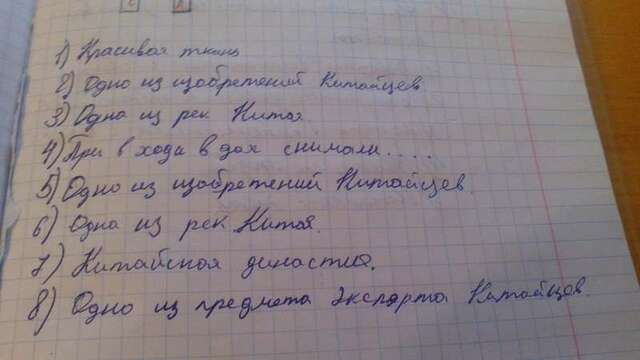 с д
1) Красивая ткань
2) Одно из изобретений Китайцев
3) Одна из рек Китая
4) При в хода в дом снимали....
5) Одно из изобретений Китайцев.
6) Одна из рек Китая.
7) Китайская династия.
8) Одно из предмета Экспорта Китайцев.